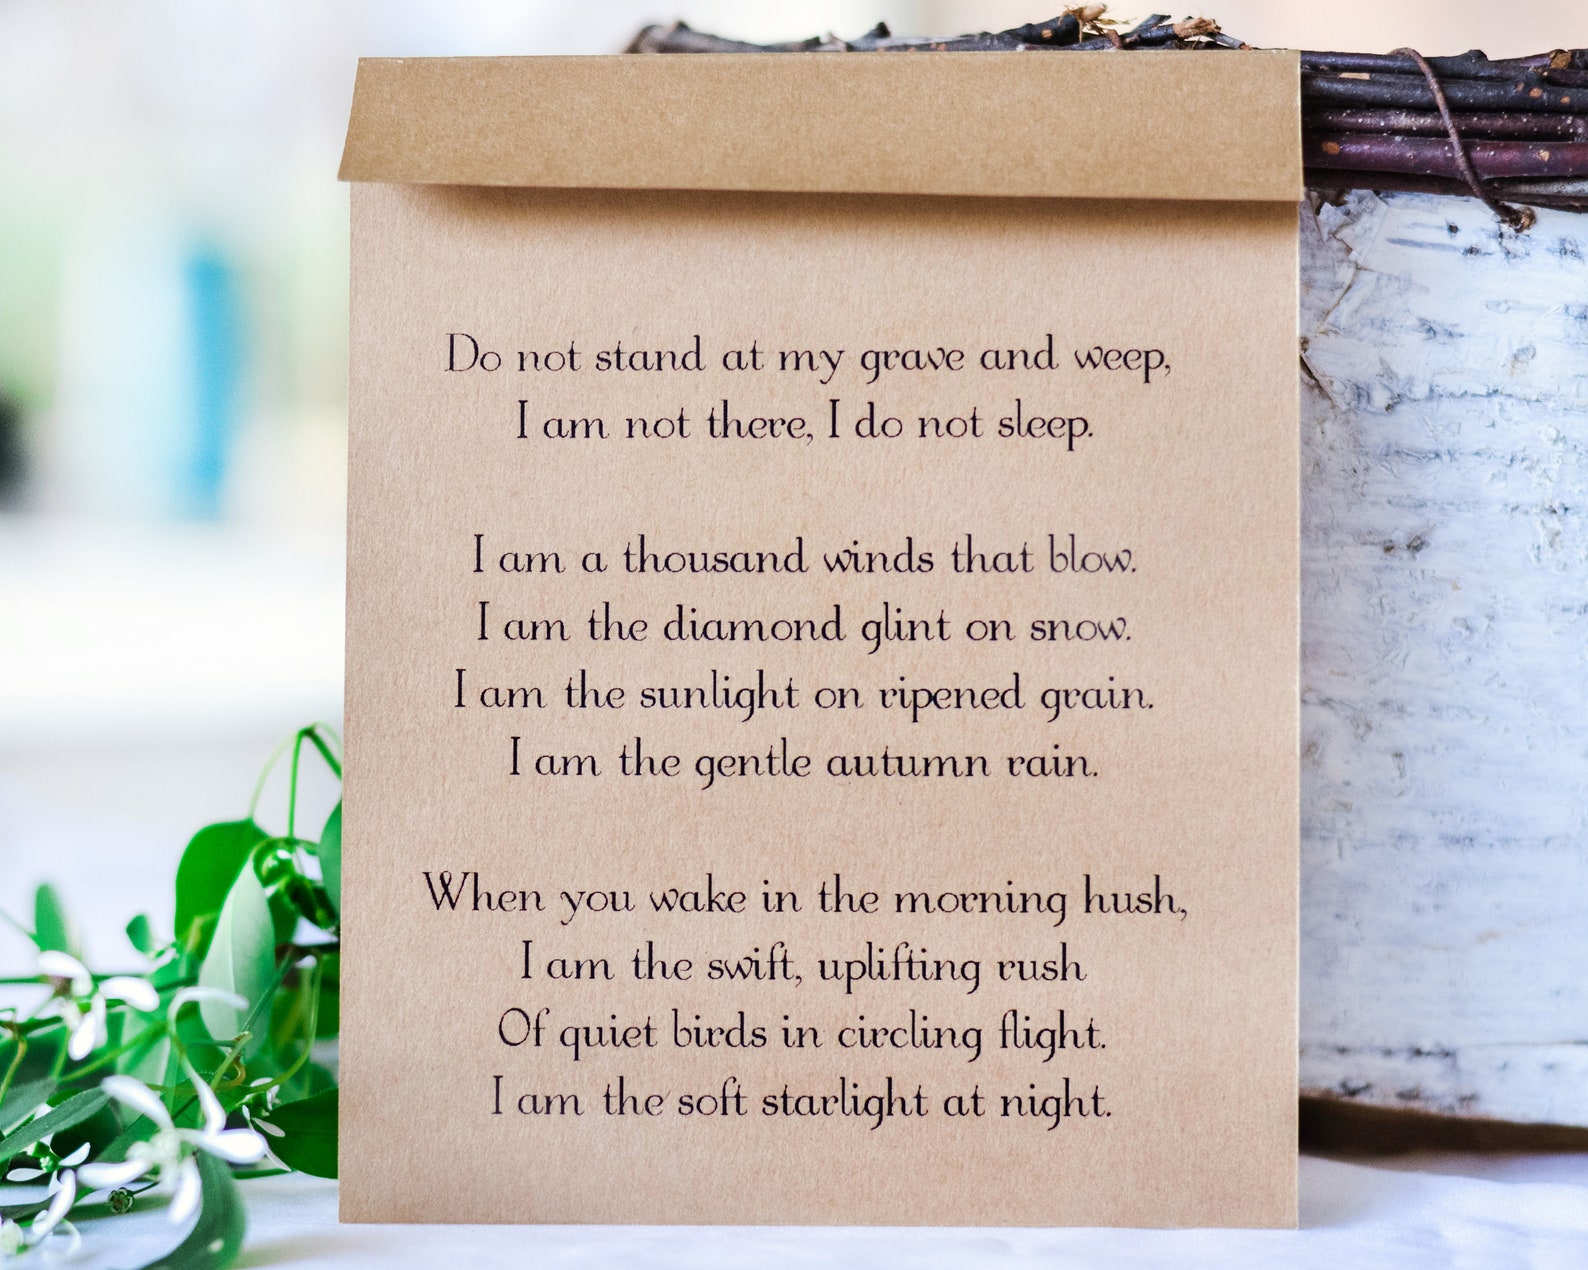 Do not stand at my grave and weep,
I am not there, I do not sleep.
I am a thousand winds that blow.
I am the diamond glint on snow.
I am the sunlight on ripened grain.
I am the gentle autumn rain.
When you wake in the morning hush,
I am the swift, uplifting rush
Of quiet birds in circling flight.
I am the soft starlight at night.